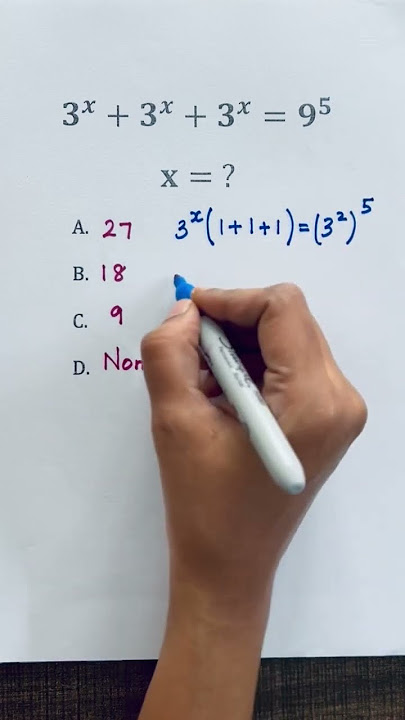 3ˣ + 3ˣ + 3ˣ = 9⁵
x = ?
A. 27
3ˣ(1+1+1)=(3²)⁵
B. 18
C. 9
D.